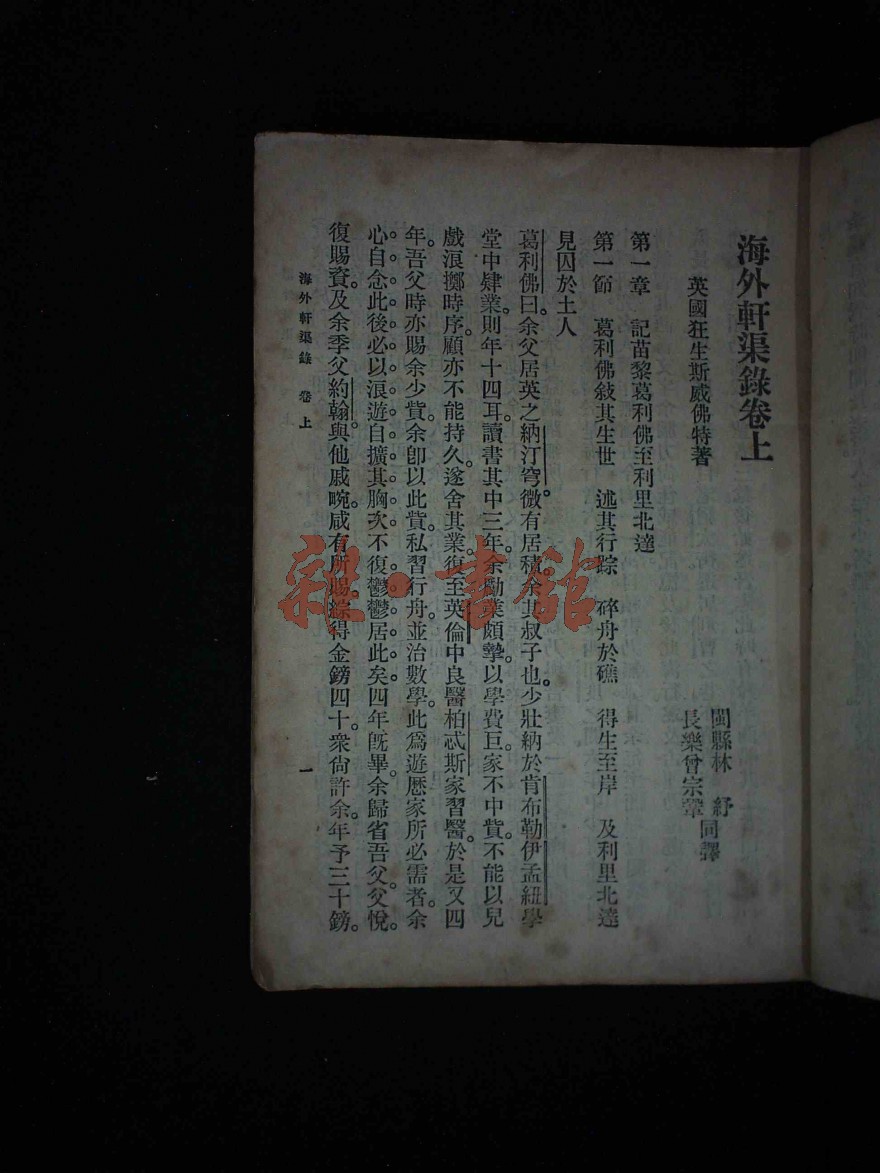 海外軒渠錄卷上
英國狂生斯威佛特著
閩縣林　紓
同譯
長樂曾宗鞏
第一章　記苗黎葛利佛至利里北達
第一節　葛利佛敍其生世　述其行踪　碎舟於礁　得生至岸　及利里北達
見囚於土人
葛利佛曰。余父居英之納汀穹。微有居積。余其叔子也。少壯納於肯布勒伊孟紐學
堂中肄業。則年十四耳。讀書其中三年。余勵業頗摯。以學費巨。家不中貲。不能以兒
戲浪擲時序。顧亦不能持久。遂舍其業。復至英倫中良醫柏忒斯家習醫。於是又四
年。吾父時亦賜余少貲。余卽以此貲。私習行舟。並治數學。此爲遊歷家所必需者。余
心自念此後必以浪遊自擴其胸次不復鬱鬱居此矣。四年旣畢。余歸省吾父。父悅。
復賜賚。及余季父約翰。與他戚畹。咸有所賜。綜得金鎊四十。衆尙許余。年予三十鎊。
海外軒渠錄　卷上
一
雜·書館